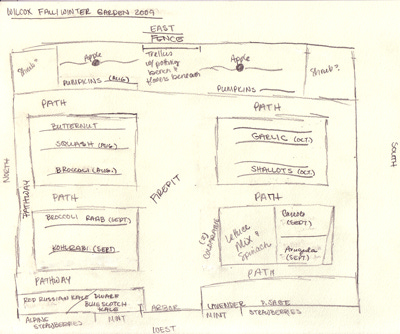 WILCOX FALL/WINTER GARDEN 2009
EAST
FENCE
Shrub?
Apple
PUMPKINS (AUG)
Trellis
w/ potting
bench &
flowers beneath
Apple
PUMPKINS
Shrub?
PATH
PATH
BUTTERNUT
SQUASH (AUG.)
BROCCOLI (AUG.)
GARLIC (OCT.)
SHALLOTS (OCT.)
NORTH
PATHWAY
FIREPIT
SOUTH
PATH
PATH
BROCCOLI RAAB (SEPT)
KOHLRABI (SEPT)
Lettuce
Mix &
Spinach
Carrots
(SEPT)
Arugula
(SEPT)
PATHWAY
PATH
RED RUSSIAN KALE
DWARF
BLUE SCOTCH
KALE
ARBOR
LAVENDER
ALPINE
STRAWBERRIES
MINT
MINT
STRAWBERRIES
WEST